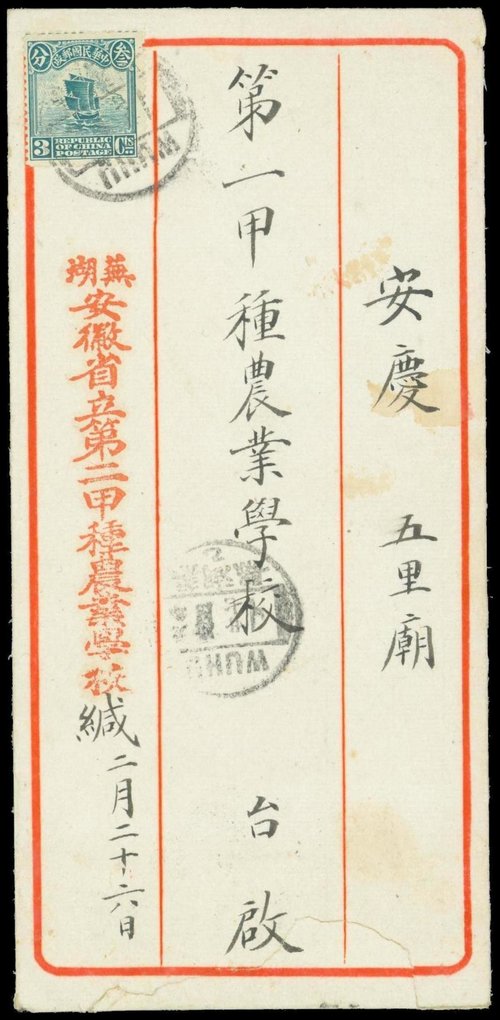 安慶 五里廟
第一甲種農業學校 台啟
蕪湖
安徽省立第二甲種農業學校
緘 二月二十六日
中華民國郵政
叁
分
3 REPUBLIC OF CHINA POSTAGE Cts
WUHU
WUHU